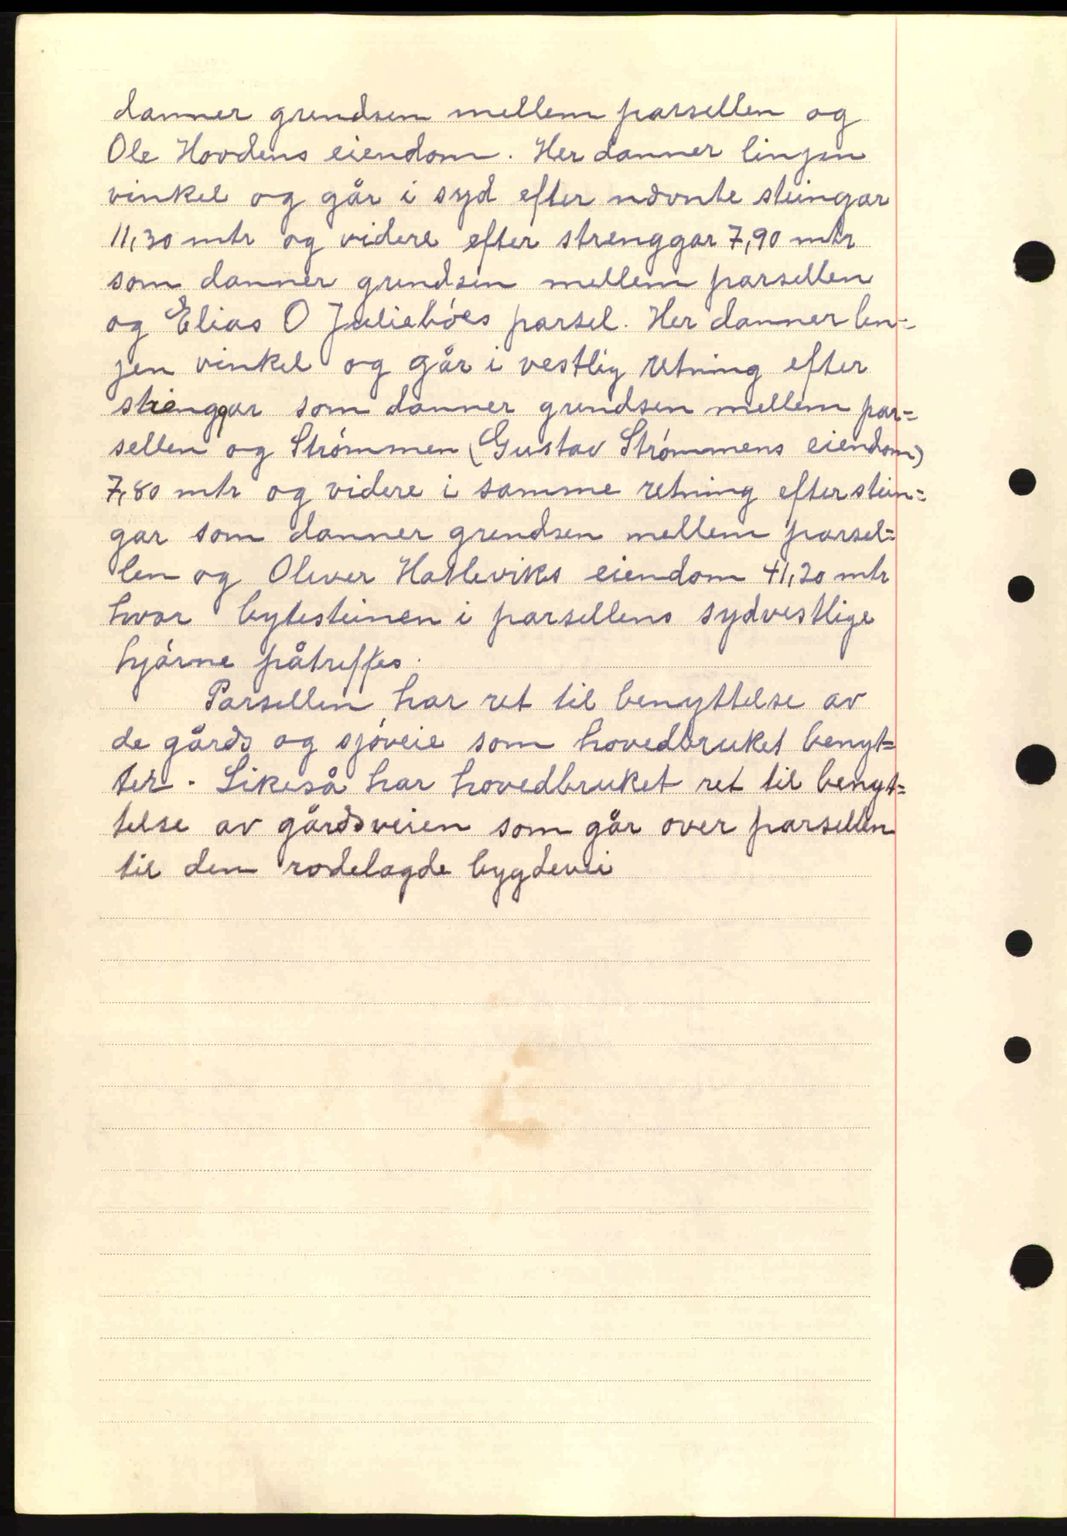 danner grendsen mellem parsellen og
Ole Hovdens eiendom. Her danner linjen
vinkel og går i syd efter nævnte steingar
11,30 mtr og videre efter strenggar 7,90 mtr
som danner grendsen mellem parsellen
og Elias O Juliebøes parsel. Her danner lin-
jen vinkel og går i vestlig retning efter
strenggar som danner grendsen mellem par=
sellen og Strømmen (Gustav Strømmens eiendom)
7,80 mtr og videre i samme retning efter stein=
gar som danner grendsen mellem parsel=
len og Oliver Hatleviks eiendom 41,20 mtr
hvor bytesteinen i parsellens sydvestlige
hjørne påtreffes.
Parsellen har ret til benyttelse av
de gårds og sjøveie som hovedbruket benyt=
ter. Likeså har hovedbruket ret til benyt=
telse av gårdsveien som går over parsellen
til den rodelagde bygdevei